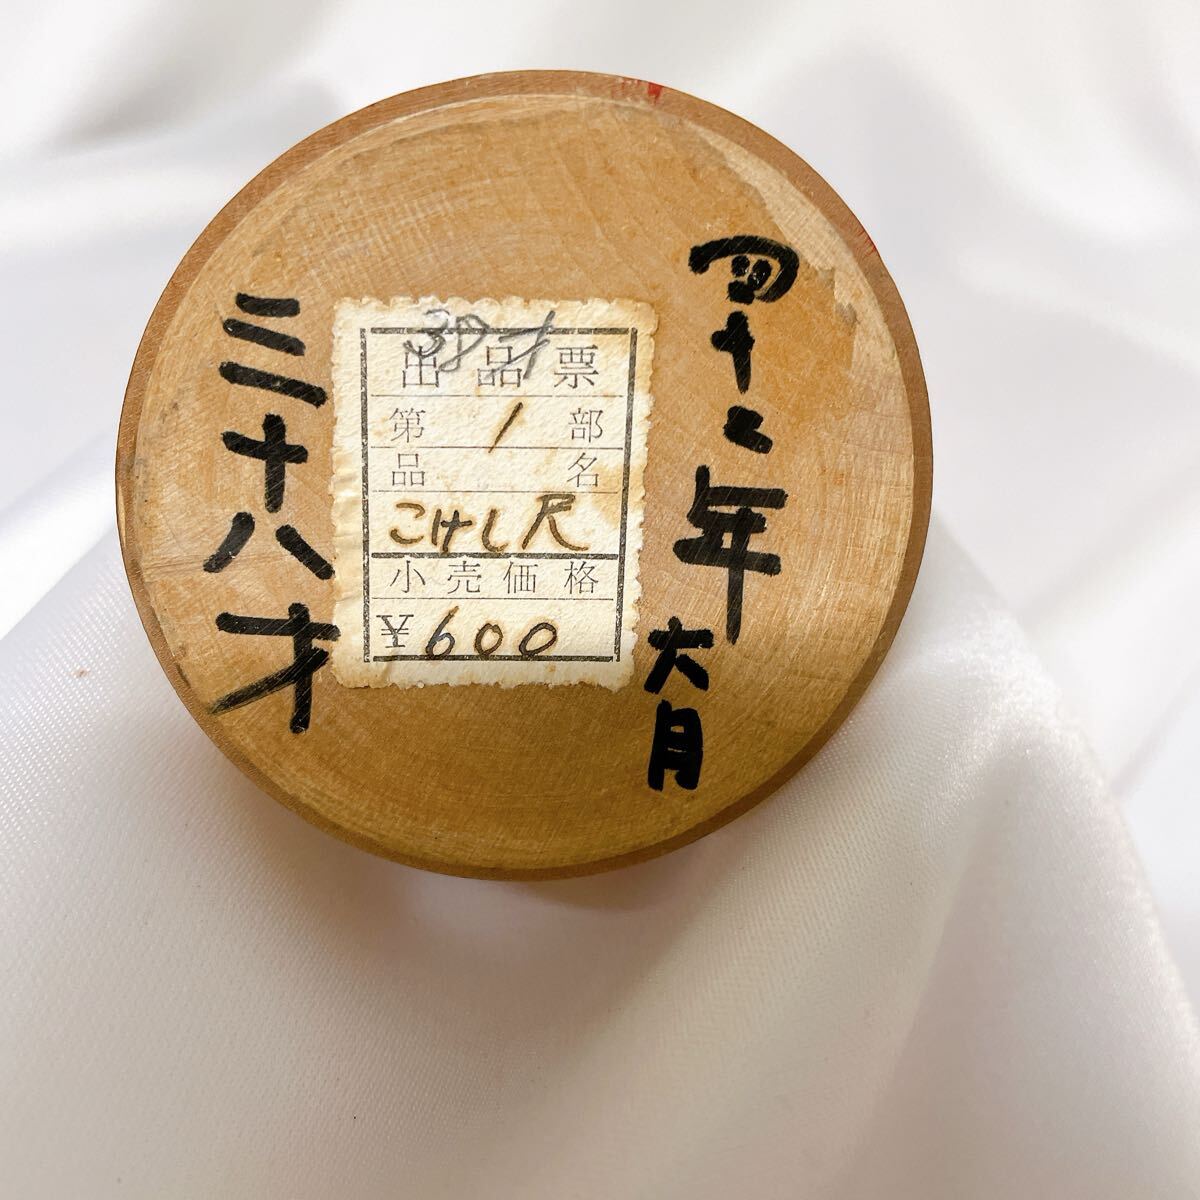 四十二年
六月
39才
出品票
第1部
品名
こけし尺
小売価格
¥600
三十八才